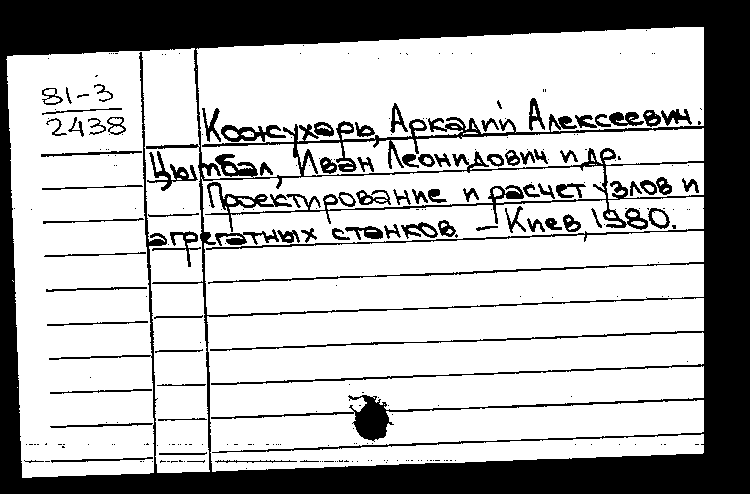 81-3
2438
Кожухарь, Аркадий Алексеевич.
Цымбал, Иван Леонидович и др.
Проектирование и расчет узлов и
агрегатных станков. – Киев, 1980.